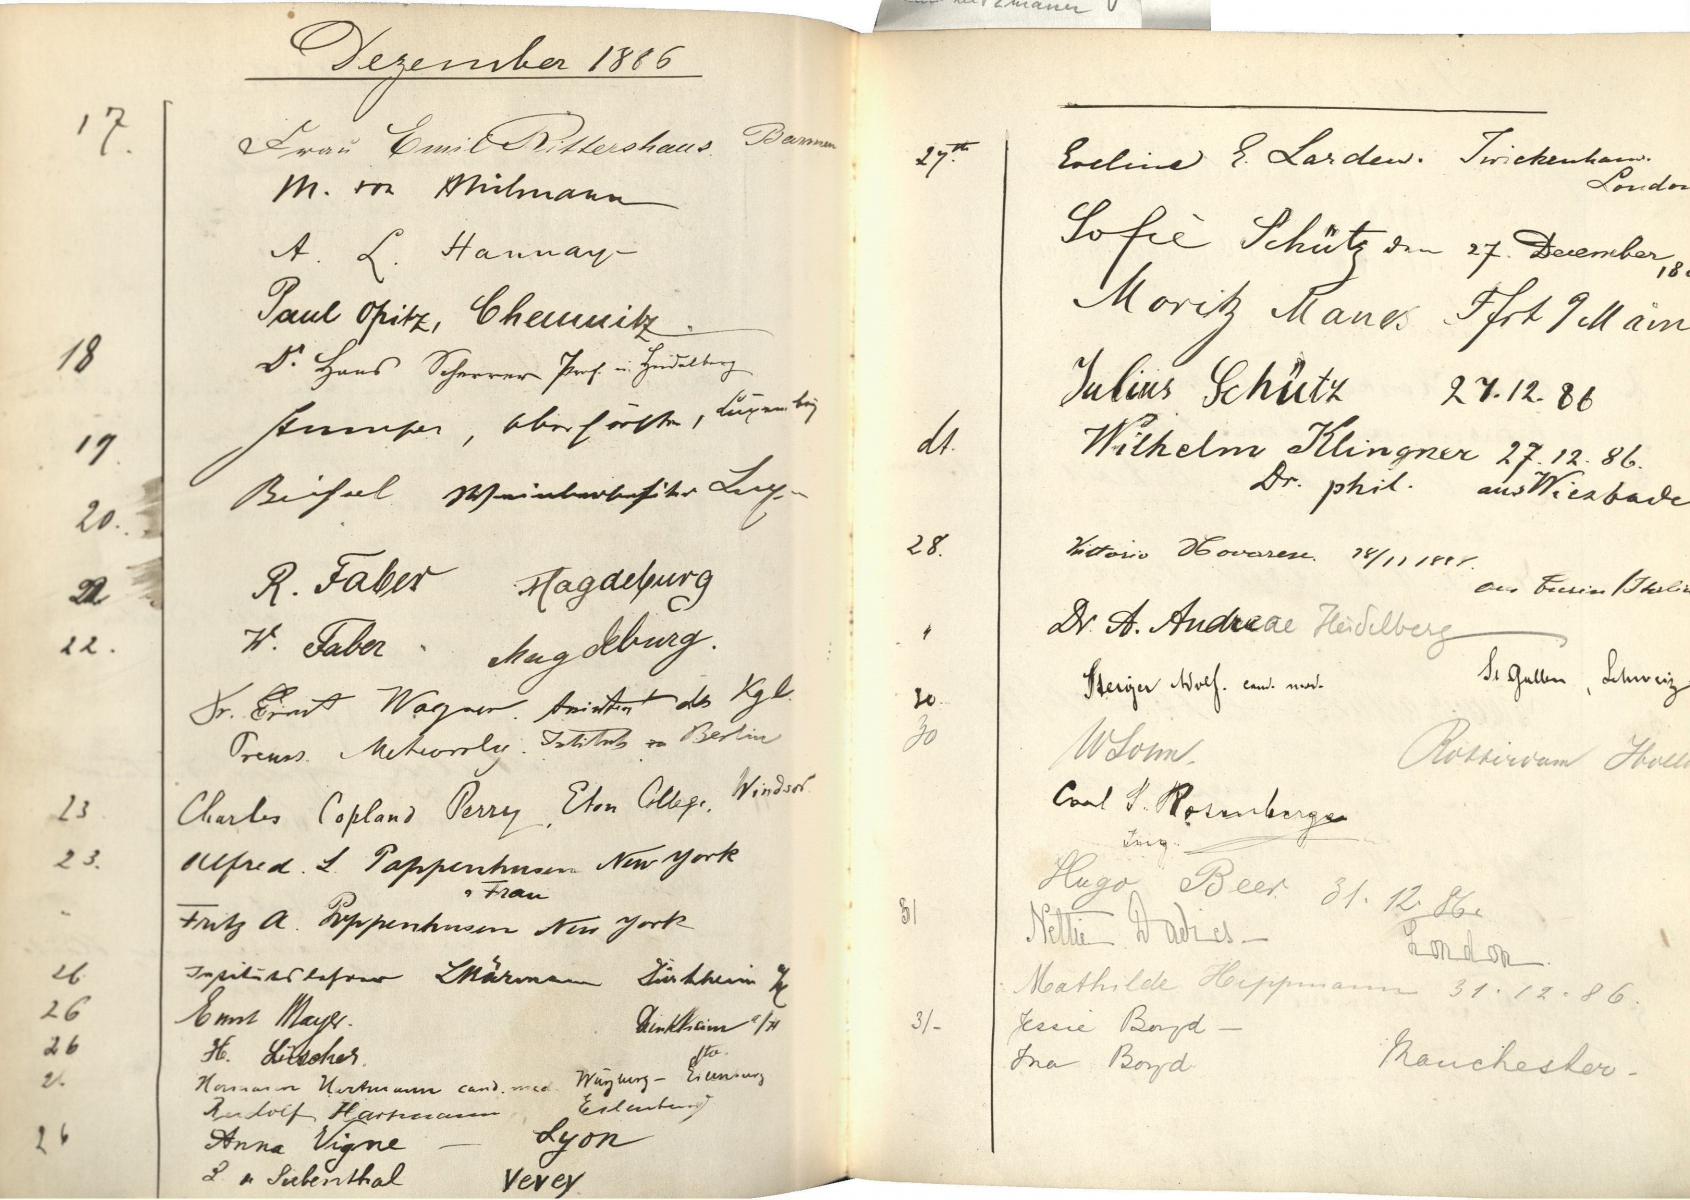 Dezember 1886
17.
Frau Emil Rittershaus. Barmen
M. von
A. L. Hannay
Paul Opitz, Chemnitz.
18
Dr. Hans Scherrer Prof. in Heidelberg
19
Stumper, Oberförster, Luxemburg
20.
Weinbarbesitzer Lux
R. Faber Magdeburg
22.
W. Faber. Magdeburg.
Dr. Ernst Wagner. Assistent des Kgl.
Preuss. Meteorolg. Instituts zu Berlin
23
Charles Copland Perry, Eton College, Windsor.
23.
Alfred. L. Pappenhusen New York
" Frau
Fritz A. Pappenhusen New York
26
Dürkheim
26
Ernst Mayer. Dürkheim a/H
26
H. Lüscher. dto.
Hermann Hartmann cand. med. Würzburg - Eilenburg
Rudolf Hartmann Eilenburg
26
Anna Vigne — Lyon
Siebenthal Vevey
27th
Eveline E. Larden. Twickenham.
London
Sofie Schütz den 27. December
Moritz Manes Ffrt a/Main
Julius Schütz 27.12.86
dt.
Wilhelm Klingner 27.12.86.
Dr. phil. aus Wiesbade
28.
Vittorio Novarese.
aus Turin
"
Dr. A. Andreae Heidelberg
30.
Steiger Adolf. cand. med. St Gallen, Schweiz
30
Rotterdam Holl
Carl S. Rosenberg
Ing.
Hugo Beer. 31. 12. 86.
31
Nettie Davies — London.
Mathilde Hippmann 31.12.86.
31-
Jessie Boyd —
Ina Boyd Manchester.